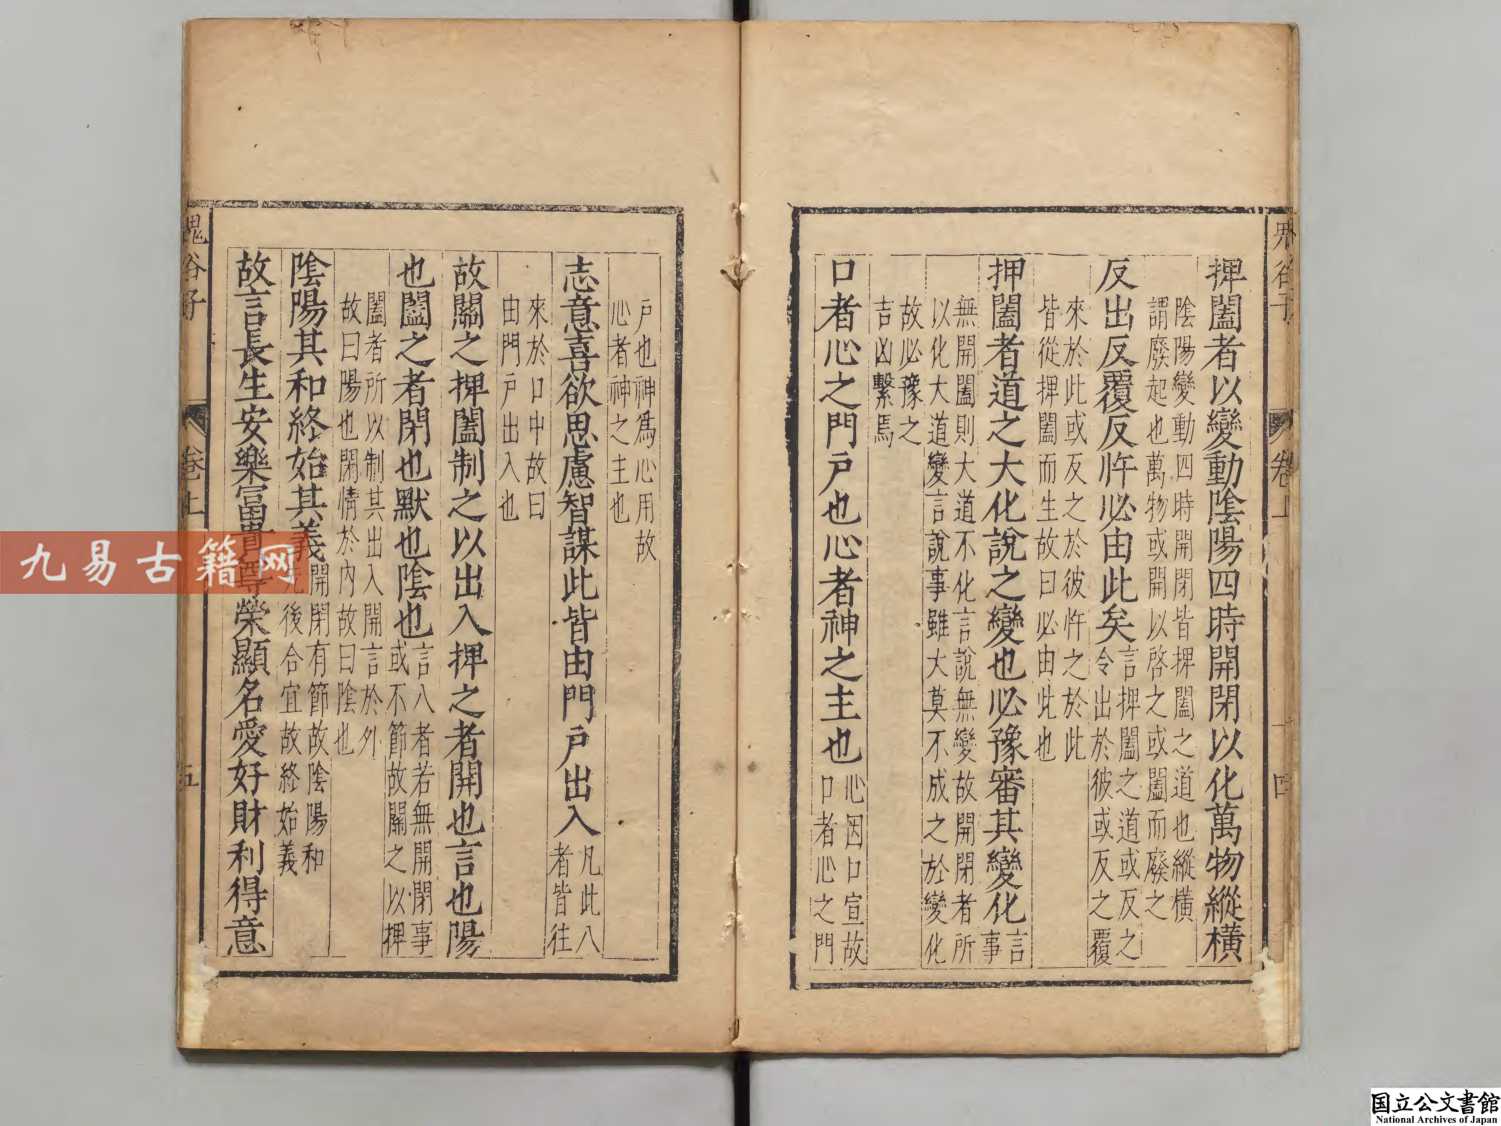 捭闔者以變動陰陽四時開閉以化萬物縱橫
陰陽變動四時開閉皆捭闔之道也縱橫
謂廢起也萬物或開以啓之或闔而廢之
反出反覆反忤必由此矣
言捭闔之道或反之
令出於彼或反之覆
來於此或反之於彼忤之於此
皆從捭闔而生故曰必由此也
押闔者道之大化說之變也必豫審其變化
言
事
無開闔則大道不化言說無變故開閉者所
以化大道變言說事雖大莫不成之於變化
故必豫之
吉凶繫焉
口者心之門戶也心者神之主也
心因口宣故
口者心之門
戶也神爲心用故
心者神之主也
志意喜欲思慮智謀此皆由門戶出入
凡此八
者皆往
來於口中故曰
由門戶出入也
故關之捭闔制之以出入捭之者開也言也陽
也闔之者閉也默也陰也
言八者若無開閉事
或不節故關之以捭
闔者所以制其出入開言於外
故曰陽也閉情於內故曰陰也
陰陽其和終始其義
開閉有節故陰陽和
先後合宜故終始義
故言長生安樂富貴尊榮顯名愛好財利得意
鬼谷子
卷上
十四
鬼谷子
卷上
五
九易古籍网
国立公文書館
National Archives of Japan